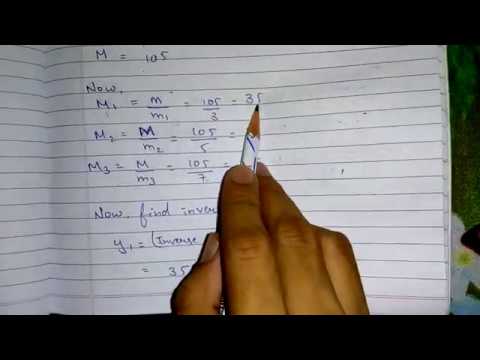 M = 105
Now,
M1 = m/m1 = 105/3 = 35
M2 = M/m2 = 105/5 =
M3 = M/m3 = 105/7 =
Now, find inver
y1 = (Inverse
= 35